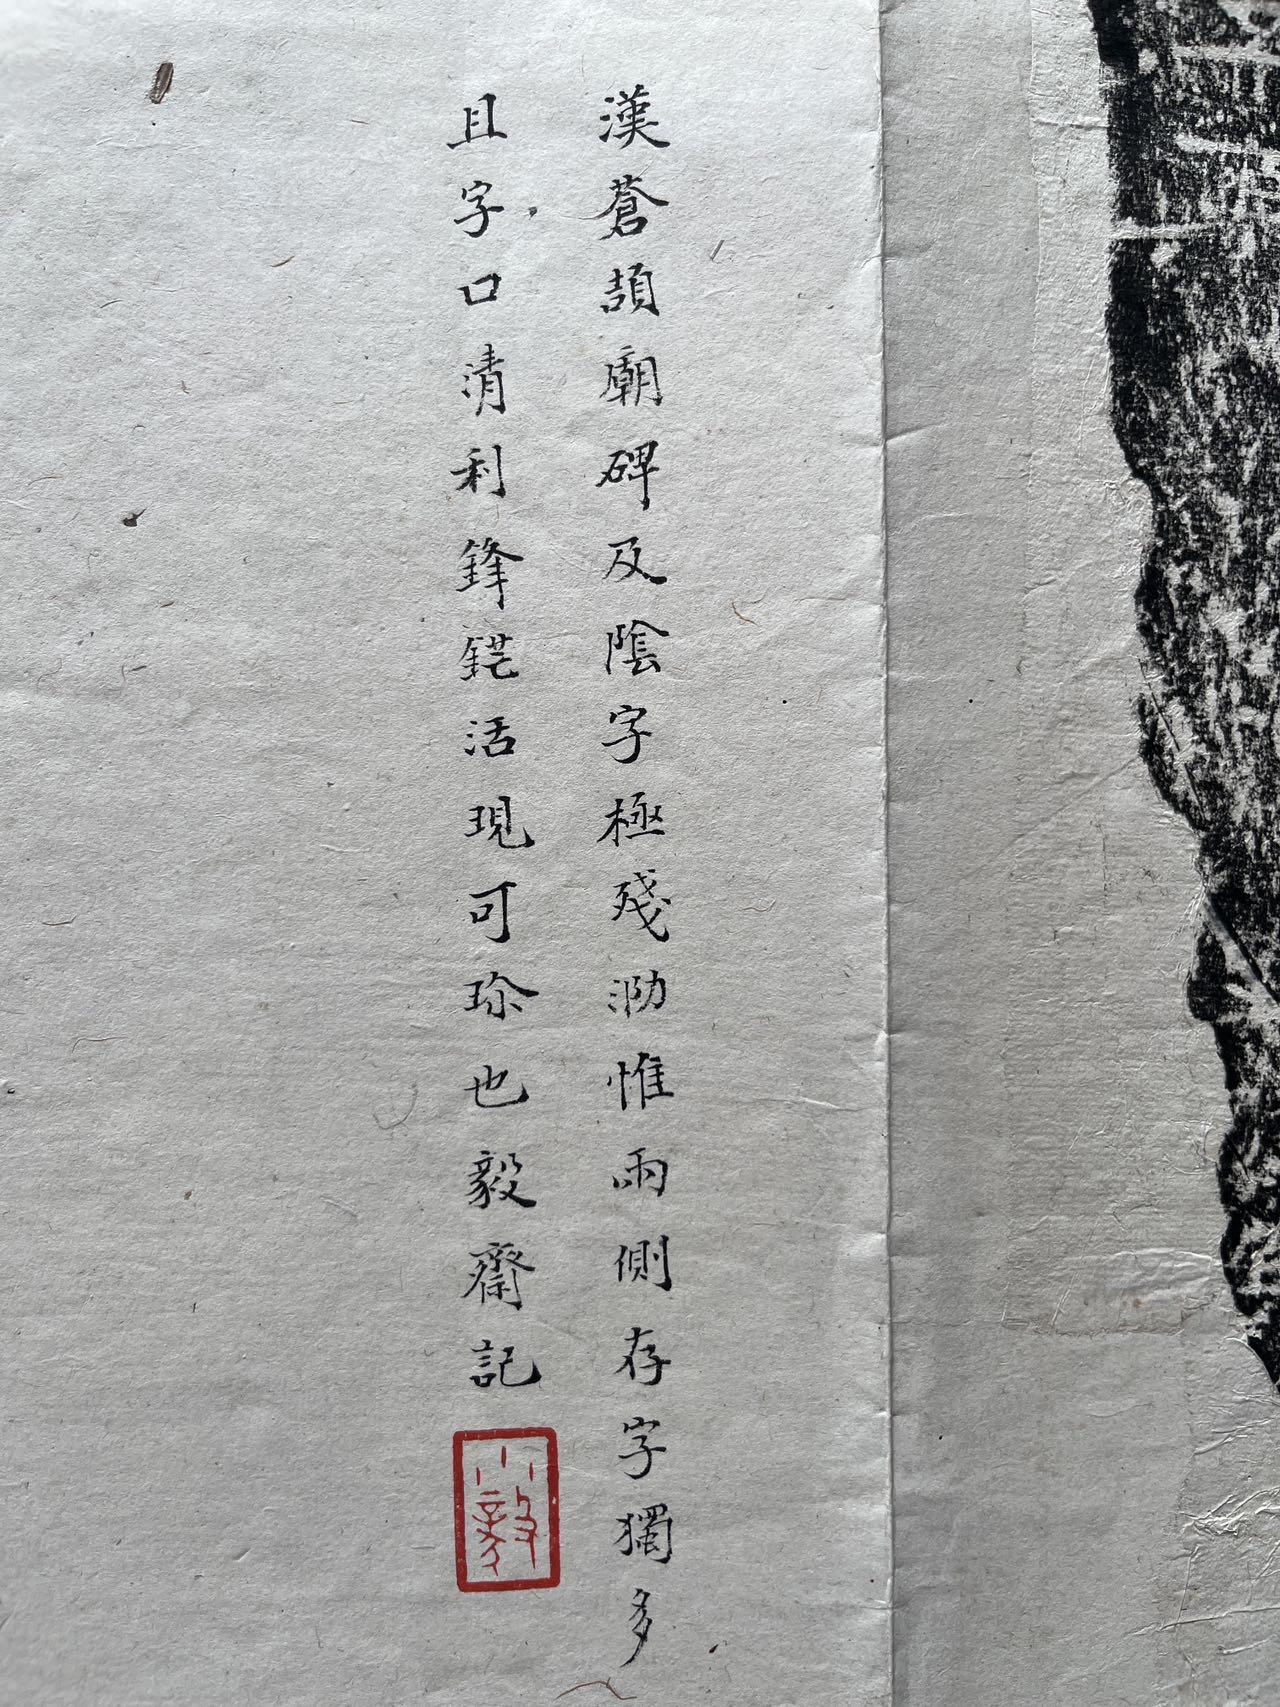 漢蒼頡廟碑及陰字極殘泐惟兩側存字獨多
且字口清利鋒鋩活現可珎也毅齋記
小毅